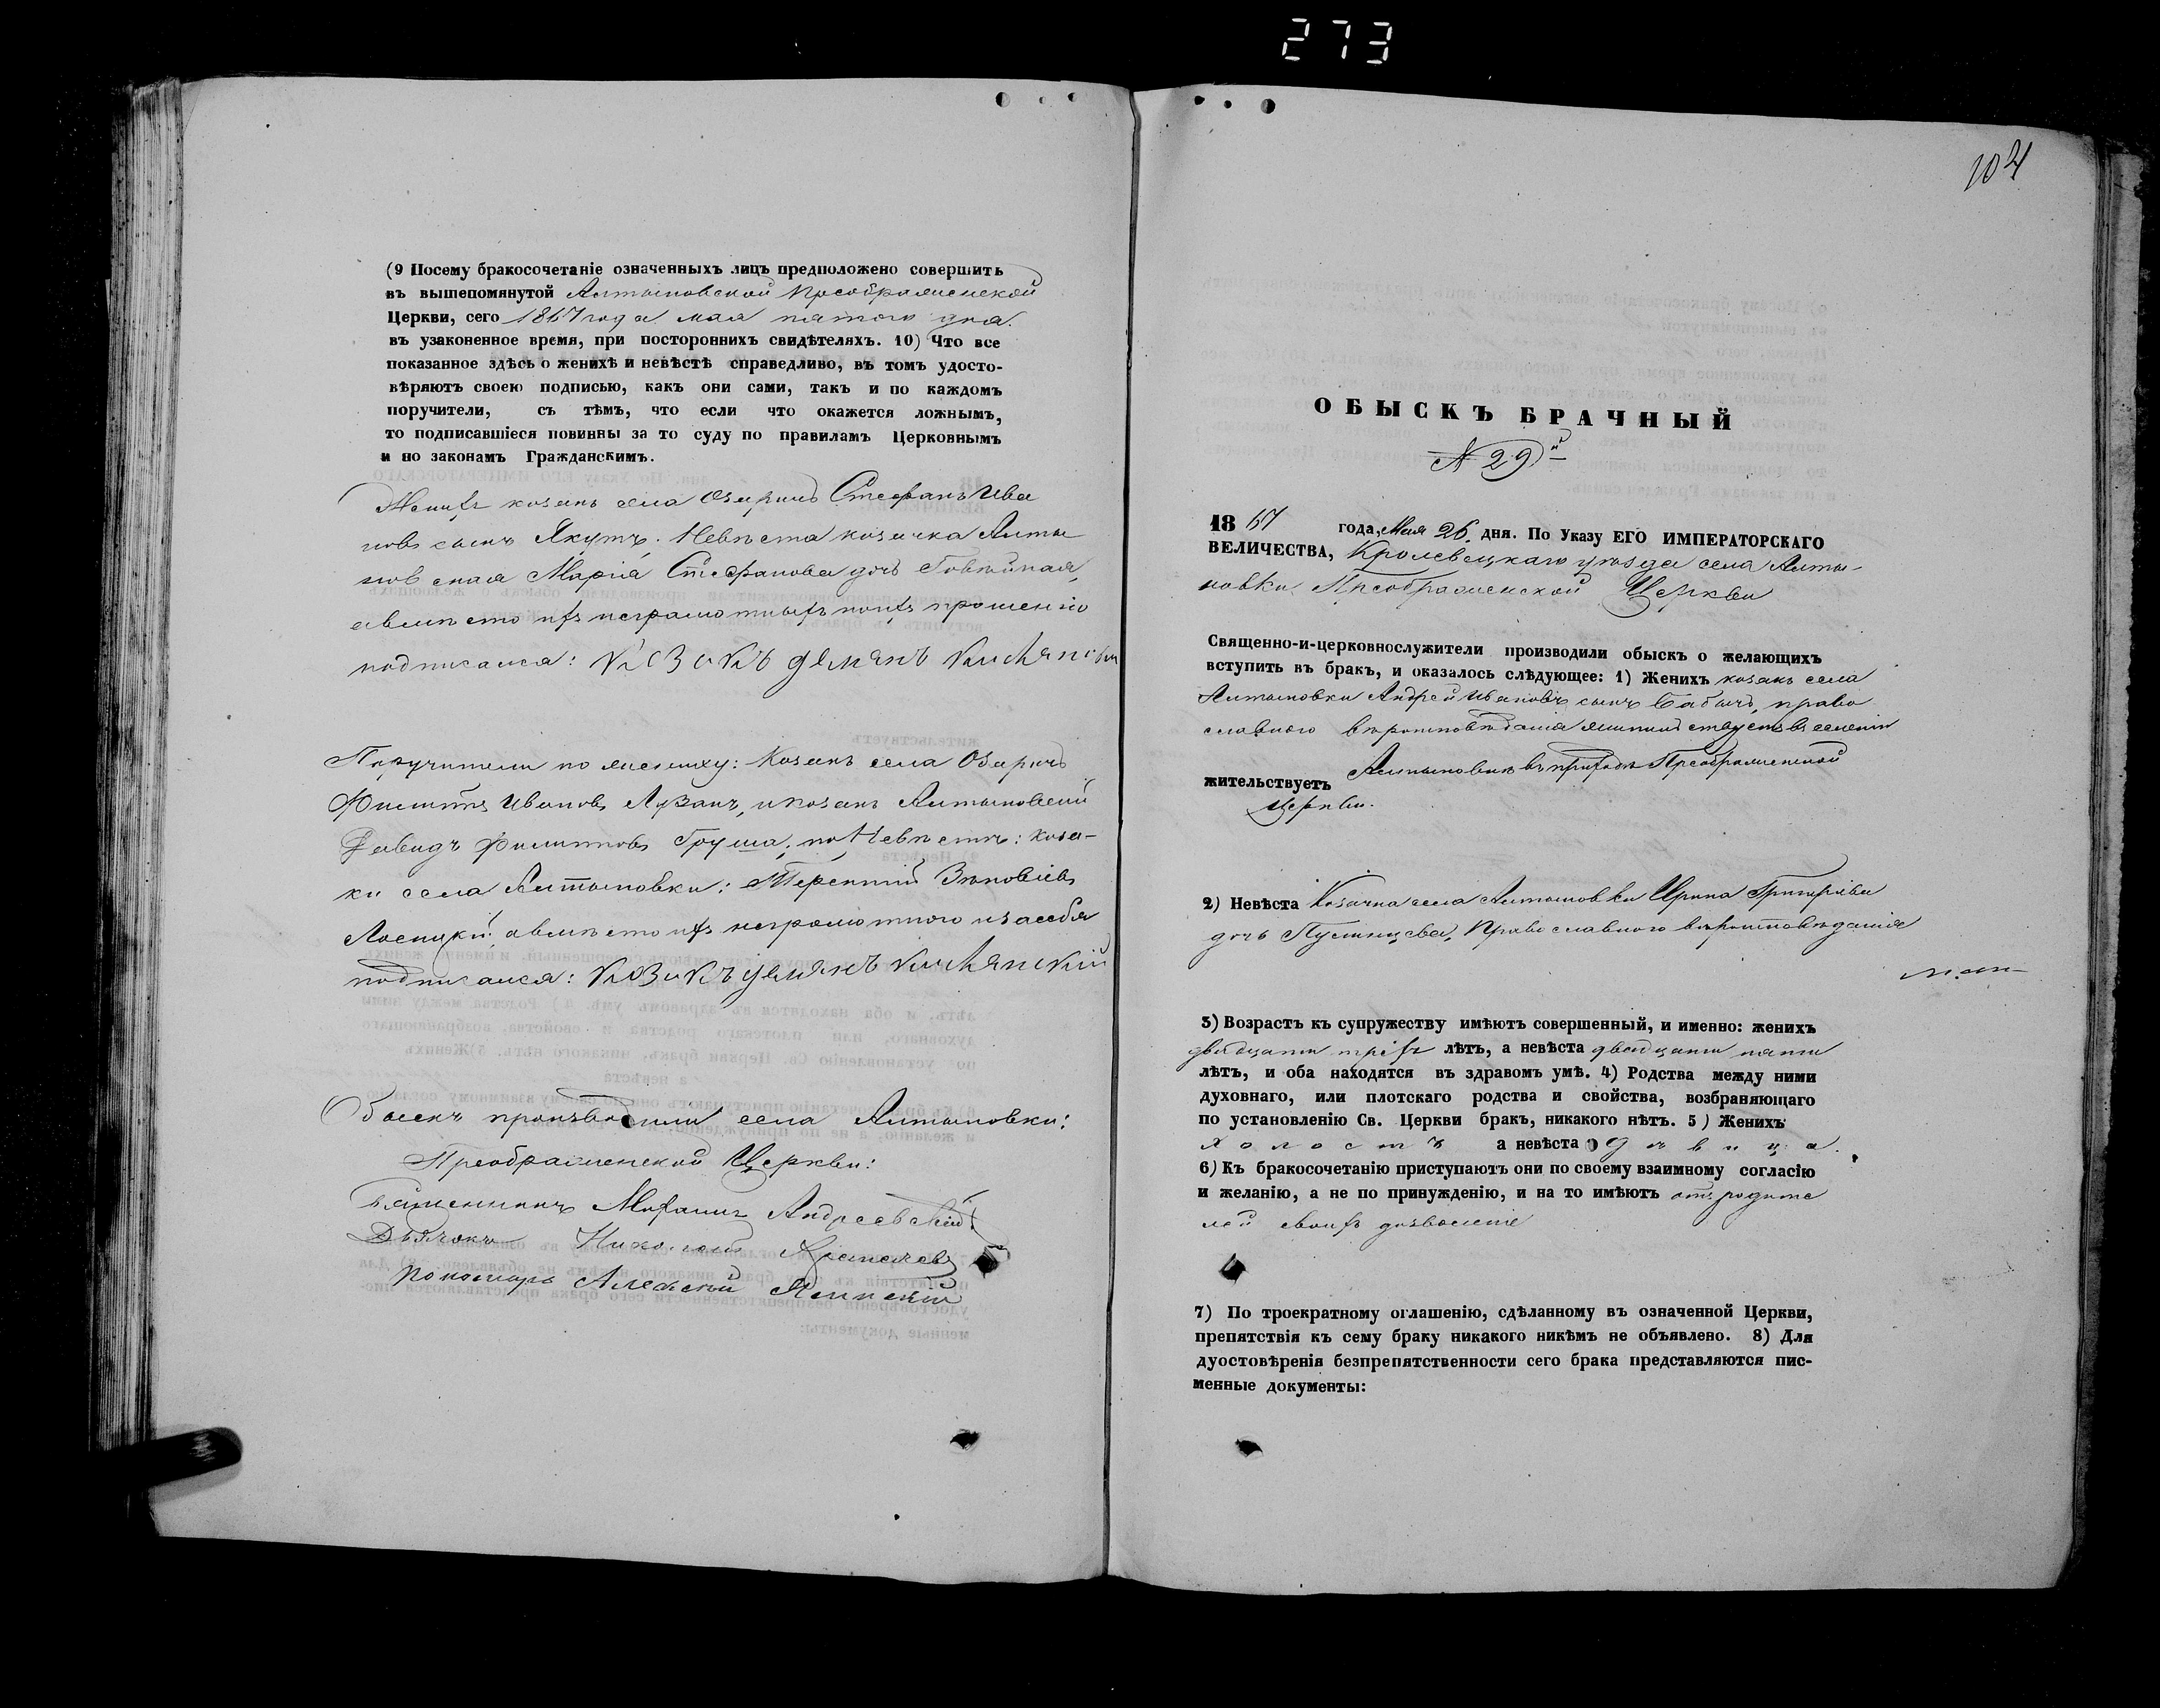 273
(9 Посему бракосочетаніе означенныхъ лицъ предположено совершить
въ вышепомянутой Алтыновской Преображенской
Церкви, сего 1867 года мая пятого дня.
въ узаконенное время, при постороннихъ свидѣтеляхъ. 10) Что все
показанное здѣсь о женихѣ и невѣстѣ справедливо, въ томъ удосто-
вѣряютъ своею подписью, какъ они сами, такъ и по каждомъ
поручители, съ тѣмъ, что если что окажется ложнымъ,
то подписавшіеся повинны за то суду по правиламъ Церковнымъ
и по законамъ Гражданскимъ.
Женихъ козакъ села Озаричъ Стефанъ Ива
новъ сынъ Якутъ. Невѣста козачка Алты
новская Марія Стефанова дочь
авмѣсто ихъ неграмотныхъ поихъ прошенію
подписался: козакъ демянъ
Поручители по жениху: Козакъ села Озаричъ
Филиппъ Ивановъ Лузанъ, и козакъ Алтыновскій
Давидъ Филипповъ Груша; по Невѣстѣ: коза-
ки села Алтыновки: Терентій Зѣновіевъ
авмѣсто ихъ неграмотного изасебя
подписался: козакъ демянъ
Обыскъ производили села Алтыновки:
Преображенской Церкви:
Священникъ Андреевскій
Дьячокъ Николай
Пономарь Алексей
104
ОБЫСКЪ БРАЧНЫЙ
№ 29й
1867 года, Мая 26. дня. По Указу ЕГО ИМПЕРАТОРСКАГО
ВЕЛИЧЕСТВА, Кролевецкаго уѣзда села Алты-
новки Преображенской Церкви
Священно-и-церковнослужители производили обыскъ о желающихъ
вступить въ бракъ, и оказалось слѣдующее: 1) Женихъ козакъ села
Алтыновки Андрей Ивановъ сынъ Бабичъ, право
славного вѣроисповѣданія въ селеніи
жительствуетъ Алтыновкѣ въ приходѣ Преображенской
Церкви.
2) Невѣста Козачка села Алтыновки Ирина Григоріева
дочь Пустовцева, Православного вѣроисповѣданія
3) Возрастъ къ супружеству имѣютъ совершенный, и именно: женихъ
двадцати трехъ лѣтъ, а невѣста двадцати пяти
лѣтъ, и оба находятся въ здравомъ умѣ. 4) Родства между ними
духовнаго, или плотскаго родства и свойства, возбраняющаго
по установленію Св. Церкви бракъ, никакого нѣтъ. 5) Женихъ
холостъ а невѣста дѣвица.
6) Къ бракосочетанію приступаютъ они по своему взаимному согласію
и желанію, а не по принужденію, и на то имѣютъ отъ родите
лей своихъ дозволеніе
7) По троекратному оглашенію, сдѣланному въ означенной Церкви,
препятствія къ сему браку никакого никѣмъ не объявлено. 8) Для
дуостовѣренія безпрепятственности сего брака представляются пис-
менные документы: